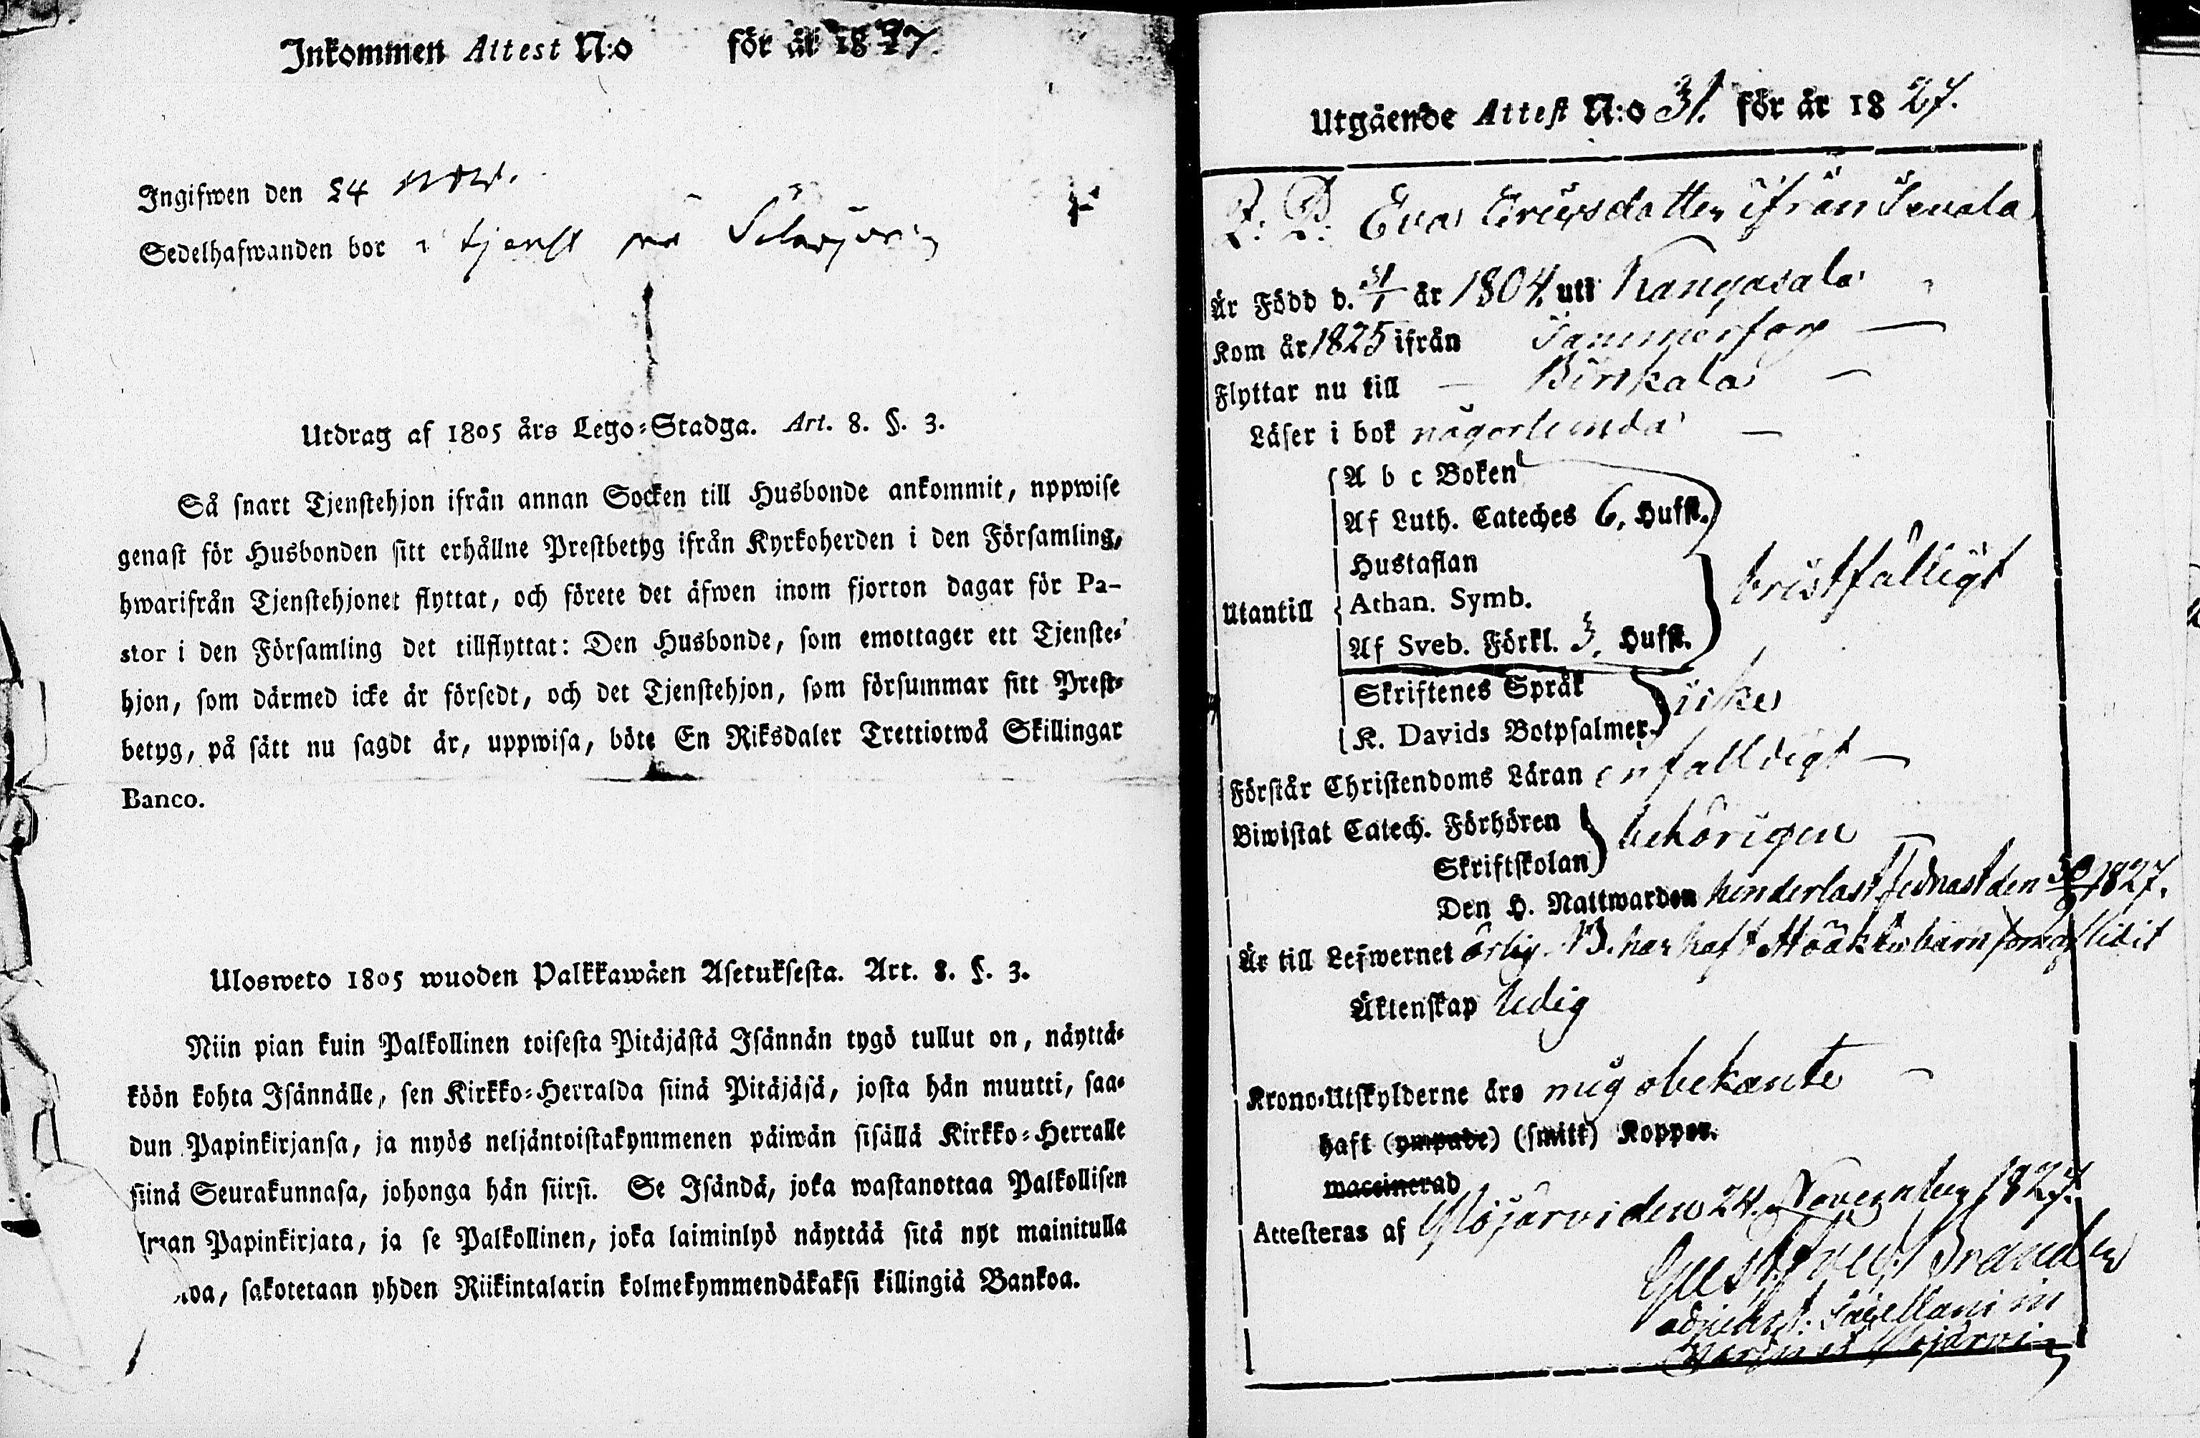 Inkommen Attest N:o för år 1827
Ingifwen den 24 Nov.
Sedelhafwanden bor i tjenst på
Utdrag af 1805 års Lego-Stadga. Art. 8. §. 3.
Så snart Tjenstehjon ifrån annan Socken till Husbonde ankommit, nppwise
genast för Husbonden sitt erhållne Prestbetyg ifrån Kyrkoherden i den Församling,
hwarifrån Tjenstehjonet flyttat, och förete det äfwen inom fjorton dagar för Pa-
stor i den Församling det tillflyttat: Den Husbonde, som emottager ett Tjenste-
hjon, som därmed icke är försedt, och det Tjenstehjon, som försummar sitt Prest-
betyg, på sätt nu sagdt är, uppwisa, böte En Riksdaler Trettiotwå Skillingar
Banco.
Ulosweto 1805 wuoden Palkkawäen Asetuksesta. Art. 8. §. 3.
Niin pian kuin Palkollinen toisesta Pitäjästä Isännän tygö tullut on, näyttä-
köön kohta Isännälle, sen Kirkko-Herralda siinä Pitäjäsä, josta hän muutti, saa-
dun Papinkirjansa, ja myös neljäntoistakymmenen päiwän sisällä Kirkko-Herralle
siinä Seurakunnasa, johonga hän siirsi. Se Isändä, joka wastanottaa Palkollisen
ilman Papinkirjata, ja se Palkollinen, joka laiminlyö näyttää sitä nyt mainitulla
woa, sakotetaan yhden Riikintalarin kolmekymmendäkaksi killingiä Bankoa.
Utgående Attest N:o 31. för år 1827.
Eva Ericsdotter ifrån
Är Född d. år 1804. uti Kangasala
Kom år 1825 ifrån Tammerfors
Flyttar nu till Birkala
Läser i bok någorlunda
A b c Boken
Af Luth. Cateches 6. Huffst.
Hustaflan
Utantill
Athan. Symb.
bristfälligt
Af Sveb. Förkl. 3. Huffst.
Skriftenes Språk
icke
K. Davids Botpsalmer
Förstår Christendoms Läran enfalldigt
Biwistat Catech. Förhören
Skriftskolan
behörigen
Den H. Nattwarden hinderlöst sednast den 30/9 1827.
Är till Lefwernet ärlig. NB. har haft oäkta barn
Äktenskap ledig
Krono-Utskylderne äro mig obekante
haft (ympade) (smitt) Koppor.
waccinerad
Attesteras af Ylöjärvi den 24. November 1827.
Gust. Brander
adjunct. Sacellani in
et Ylöjärvi